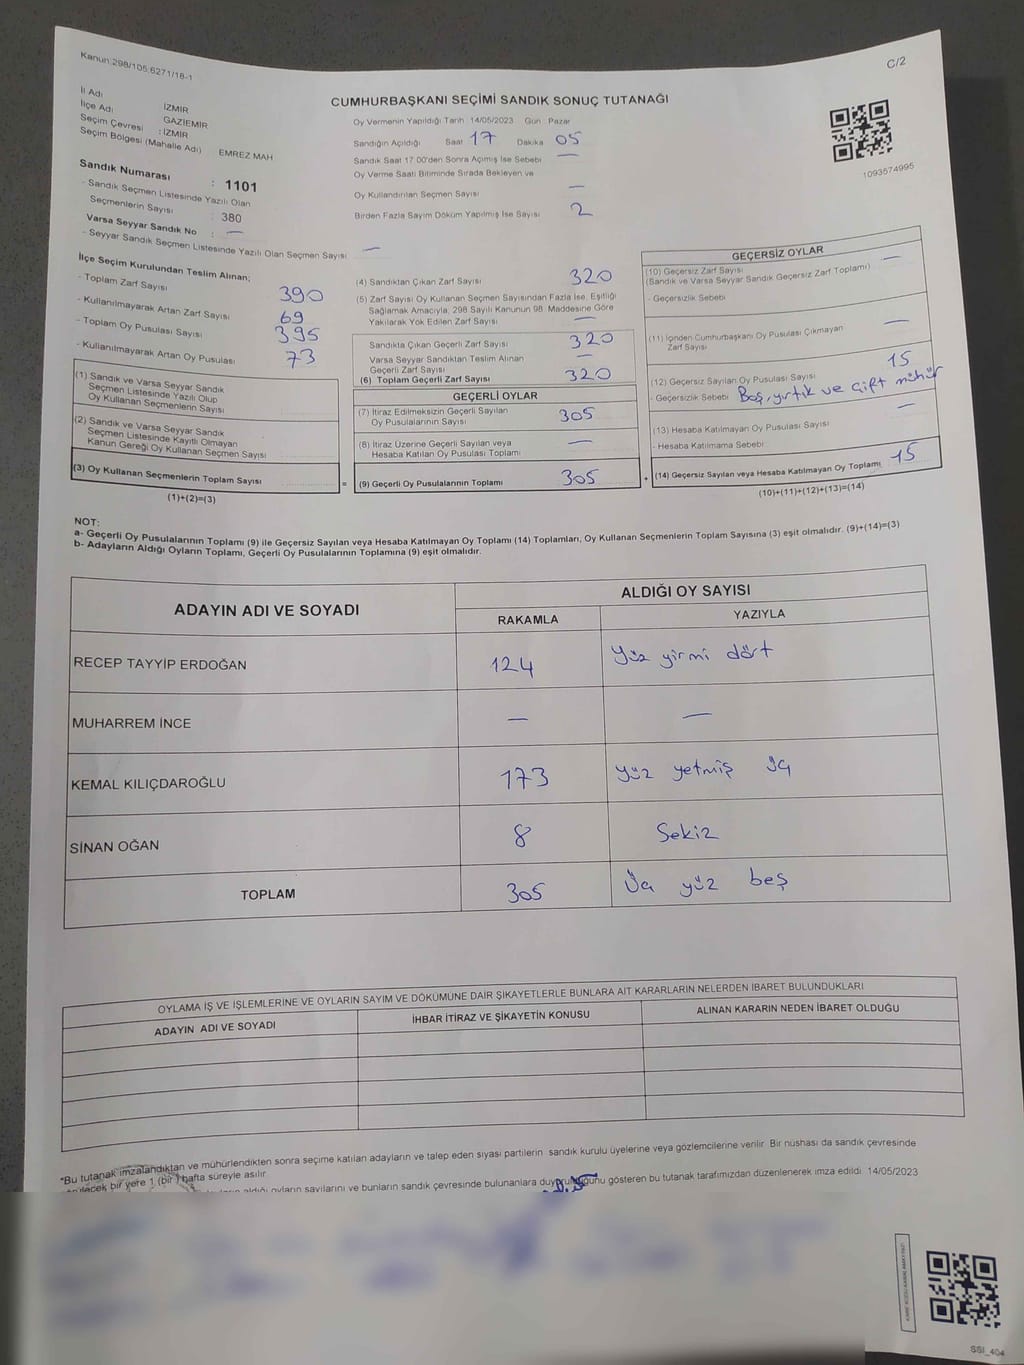 Kanun:298/105;6271/18-1
C/2
CUMHURBAŞKANI SEÇİMİ SANDIK SONUÇ TUTANAĞI
İl Adı : İZMİR
İlçe Adı GAZİEMİR
Seçim Çevresi : İZMİR
Seçim Bölgesi (Mahalle Adı) EMREZ MAH
Sandık Numarası : 1101
- Sandık Seçmen Listesinde Yazılı Olan
Seçmenlerin Sayısı : 380
Varsa Seyyar Sandık No : —
- Seyyar Sandık Seçmen Listesinde Yazılı Olan Seçmen Sayısı —
Oy Vermenin Yapıldığı Tarih 14/05/2023 Gün Pazar
Sandığın Açıldığı Saat 17 Dakika 05
Sandık Saat 17:00'den Sonra Açımış İse Sebebi —
Oy Verme Saati Bitiminde Sırada Bekleyen ve
Oy Kullandırılan Seçmen Sayısı —
Birden Fazla Sayım Döküm Yapılmış İse Sayısı 2
1093574995
İlçe Seçim Kurulundan Teslim Alınan;
- Toplam Zarf Sayısı 390
- Kullanılmayarak Artan Zarf Sayısı 69
- Toplam Oy Pusulası Sayısı 395
- Kullanılmayarak Artan Oy Pusulası 73
(1) Sandık ve Varsa Seyyar Sandık
Seçmen Listesinde Yazılı Olup
Oy Kullanan Seçmenlerin Sayısı
(2) Sandık ve Varsa Seyyar Sandık
Seçmen Listesinde Kayıtlı Olmayan
Kanun Gereği Oy Kullanan Seçmen Sayısı
(3) Oy Kullanan Seçmenlerin Toplam Sayısı
(1)+(2)=(3)
(4) Sandıktan Çıkan Zarf Sayısı 320
(5) Zarf Sayısı Oy Kullanan Seçmen Sayısından Fazla İse, Eşitliği
Sağlamak Amacıyla, 298 Sayılı Kanunun 98. Maddesine Göre
Yakılarak Yok Edilen Zarf Sayısı —
Sandıkta Çıkan Geçerli Zarf Sayısı 320
Varsa Seyyar Sandıktan Teslim Alınan
Geçerli Zarf Sayısı —
(6) Toplam Geçerli Zarf Sayısı 320
GEÇERLİ OYLAR
(7) İtiraz Edilmeksizin Geçerli Sayılan
Oy Pusulalarının Sayısı 305
(8) İtiraz Üzerine Geçerli Sayılan veya
Hesaba Katılan Oy Pusulası Toplamı —
= (9) Geçerli Oy Pusulalarının Toplamı 305 +
GEÇERSİZ OYLAR
(10) Geçersiz Zarf Sayısı —
(Sandık ve Varsa Seyyar Sandık Geçersiz Zarf Toplamı)
- Geçersizlik Sebebi
(11) İçinden Cumhurbaşkanı Oy Pusulası Çıkmayan
Zarf Sayısı —
(12) Geçersiz Sayılan Oy Pusulası Sayısı 15
- Geçersizlik Sebebi Boş, yırtık ve çift mühür
(13) Hesaba Katılmayan Oy Pusulası Sayısı —
- Hesaba Katılmama Sebebi
(14) Geçersiz Sayılan veya Hesaba Katılmayan Oy Toplamı 15
(10)+(11)+(12)+(13)=(14)
NOT:
a- Geçerli Oy Pusulalarının Toplamı (9) ile Geçersiz Sayılan veya Hesaba Katılmayan Oy Toplamı (14) Toplamları, Oy Kullanan Seçmenlerin Toplam Sayısına (3) eşit olmalıdır. (9)+(14)=(3)
b- Adayların Aldığı Oyların Toplamı, Geçerli Oy Pusulalarının Toplamına (9) eşit olmalıdır.
ADAYIN ADI VE SOYADI ALDIĞI OY SAYISI
RAKAMLA YAZIYLA
RECEP TAYYİP ERDOĞAN 124 Yüz yirmi dört
MUHARREM İNCE — —
KEMAL KILIÇDAROĞLU 173 yüz yetmiş üç
SİNAN OĞAN 8 Sekiz
TOPLAM 305 Üç yüz beş
OYLAMA İŞ VE İŞLEMLERİNE VE OYLARIN SAYIM VE DÖKÜMÜNE DAİR ŞİKAYETLERLE BUNLARA AİT KARARLARIN NELERDEN İBARET BULUNDUKLARI
ADAYIN ADI VE SOYADI İHBAR İTİRAZ VE ŞİKAYETİN KONUSU ALINAN KARARIN NEDEN İBARET OLDUĞU
*Bu tutanak imzalandıktan ve mühürlendikten sonra seçime katılan adayların ve talep eden siyasi partilerin sandık kurulu üyelerine veya gözlemcilerine verilir. Bir nüshası da sandık çevresinde
bir yere 1 (bir) hafta süreyle asılır.
aldığı oyların sayılarını ve bunların sandık çevresinde bulunanlara duyurulduğunu gösteren bu tutanak tarafımızdan düzenlenerek imza edildi. 14/05/2023
SSI_404